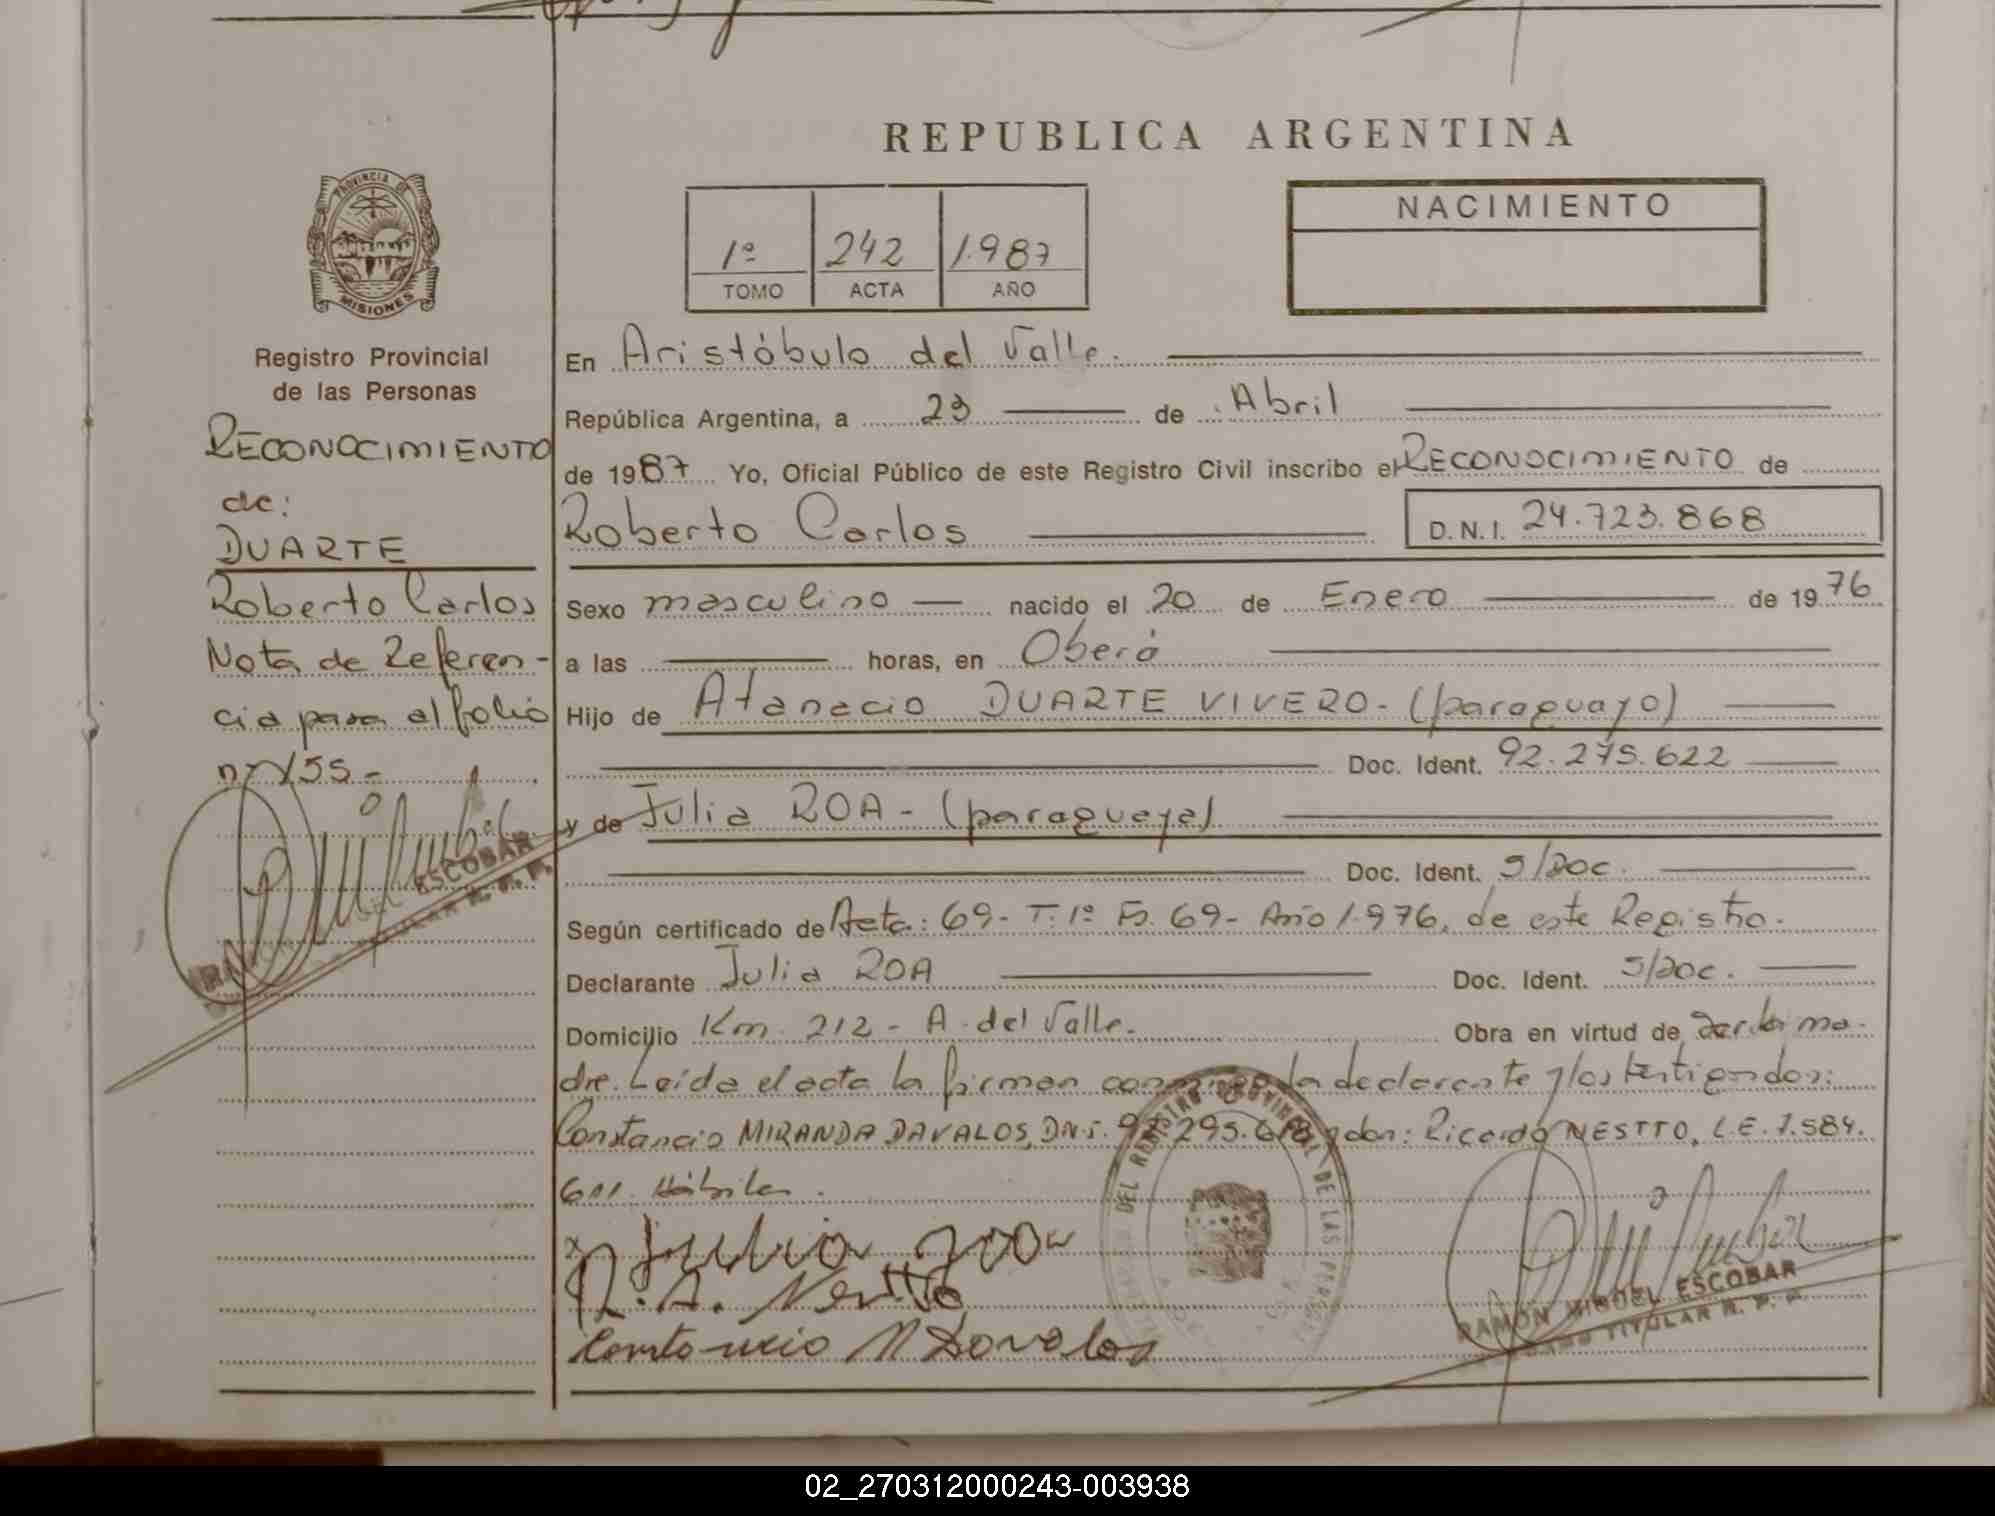 REPUBLICA ARGENTINA
PROVINCIA DE
MISIONES
Registro Provincial
de las Personas
RECONOCIMIENTO
de:
DUARTE
Roberto Carlos
Nota de Referen-
cia para el folio
nº 155-
ESCOBAR
1º 242 1.987
TOMO ACTA AÑO
NACIMIENTO
En Aristóbulo del Valle.
República Argentina, a 23 de Abril
de 1987 Yo, Oficial Público de este Registro Civil inscribo el RECONOCIMIENTO de
Roberto Carlos D.N.I. 24.723.868
Sexo masculino nacido el 20 de Enero de 1976
a las horas, en Oberá
Hijo de Atanacio DUARTE VIVERO- (paraguayo)
Doc. Ident. 92.275.622
y de Julia ROA- (paraguaya)
Doc. Ident. S/Doc.
Según certificado de Acta: 69- T: 1º Fº. 69- Año 1.976, de este Registro.
Declarante Julia ROA Doc. Ident. S/Doc.
Domicilio Km. 212- A. del Valle. Obra en virtud de ser la ma-
dre. Leída el acta la firman conmigo la declarante y los testigos don:
Constancio MIRANDA DAVALOS, DNI. 92.295.618 y don: Ricardo NESTTO, L.E. 7.584.
611. Hábiles.
x Julia roa
R. A. Nestto
Constancio M Dovalos
DEL REGISTRO PROVINCIAL DE LAS PERSONAS
RAMÓN MIGUEL ESCOBAR
TITULAR R. P. P.
02_270312000243-003938